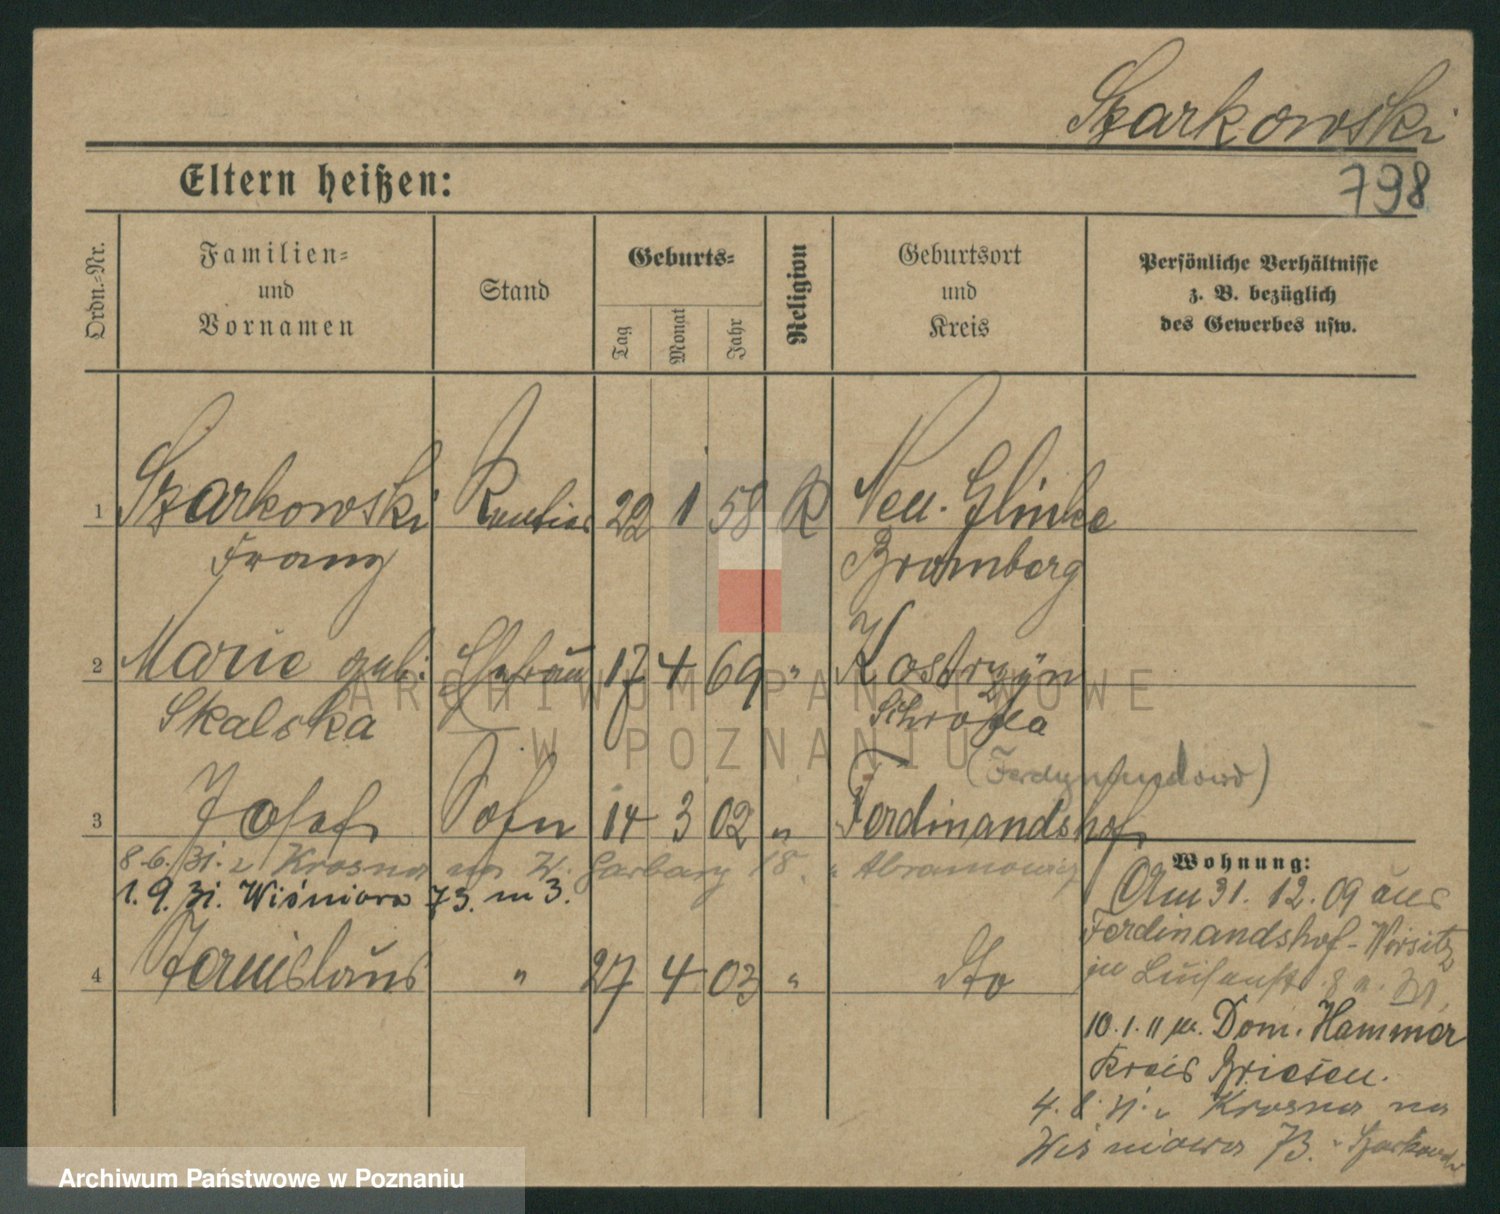 Szarkowski
798
Eltern heißen:
Ordn.-Nr.
Familien- und Vornamen
Stand
Geburts-
Tag
Monat
Jahr
Religion
Geburtsort und Kreis
Persönliche Verhältnisse z. B. bezüglich des Gewerbes usw.
1 Szarkowski Rentier 22 1 58 K Neu. Glinke
Franz Bromberg
2 Marie geb: Ehefrau 17 4 69 " Kostrzyn
Skalska Schroda
(Ferdynandowo)
3 Josef Sohn 14 3 02 " Ferdinandshof
8.6.31. z Krosna na W. Garbary 18. Abramowicz
1.9.31. Wiśniowa 73. m 3.
4 " 27 4 03 " dto
Wohnung:
Am 31. 12. 09 aus
Ferdinandshof - Wirsitz
in Luisenstr. 8
10.1.11 Dom. Hammer
Kreis Briesen.
4.8.31. z Krosna na
Wiśniowa 73. Szarkowski
ARCHIWUM PAŃSTWOWE
W POZNANIU
Archiwum Państwowe w Poznaniu